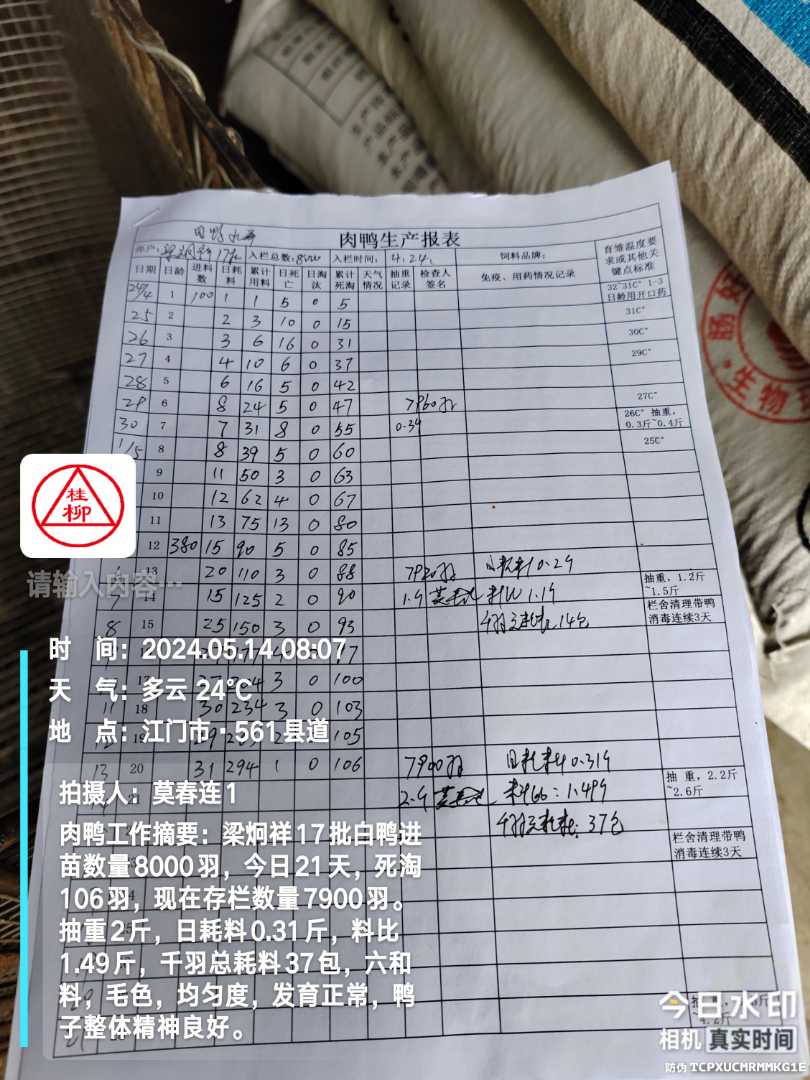 肉鸭生产报表
入栏总数: 8000 入栏时间: 4.24. 饲料品牌:
日期 日龄 进料数 日耗料 累计用料 日死亡 日淘汰 累计死淘 天气情况 抽重记录 检查人签名 免疫、用药情况记录 育雏温度要求或其他关键点标准
24/4 1 100 1 1 5 0 5 32~31C° 1-3日龄用开口药
25 2 2 3 10 0 15 31C°
26 3 3 6 16 0 31 30C°
27 4 4 10 6 0 37 29C°
28 5 6 16 5 0 42
29 6 8 24 5 0 47 7960羽 27C°
30 7 7 31 8 0 55 0.34 26C° 抽重,0.3斤~0.4斤
1/5 8 8 39 5 0 60 25C°
9 11 50 3 0 63
10 12 62 4 0 67
11 13 75 13 0 80
12 380 15 90 5 0 85
13 20 110 3 0 88 7920羽 日耗料0.2斤
14 15 125 2 0 90 料比1.1斤 抽重,1.2斤~1.5斤
8 15 25 150 3 0 93 14包 栏舍清理带鸭消毒连续3天
3 0 100
11 18 30 234 3 0 103
105
13 20 31 294 1 0 106 7900羽 日耗料0.31斤
料比:1.49斤 抽重,2.2斤~2.6斤
37包
栏舍清理带鸭消毒连续3天
桂柳
请输入内容...
时 间:2024.05.14 08:07
天 气:多云 24℃
地 点:江门市·561县道
拍摄人:莫春连1
肉鸭工作摘要:梁炯祥17批白鸭进
苗数量8000羽,今日21天,死淘
106羽,现在存栏数量7900羽。
抽重2斤,日耗料0.31斤,料比
1.49斤,千羽总耗料37包,六和
料,毛色,均匀度,发育正常,鸭
子整体精神良好。
今日水印
相机 真实时间
防伪 TCPXUCMRMMKG1E